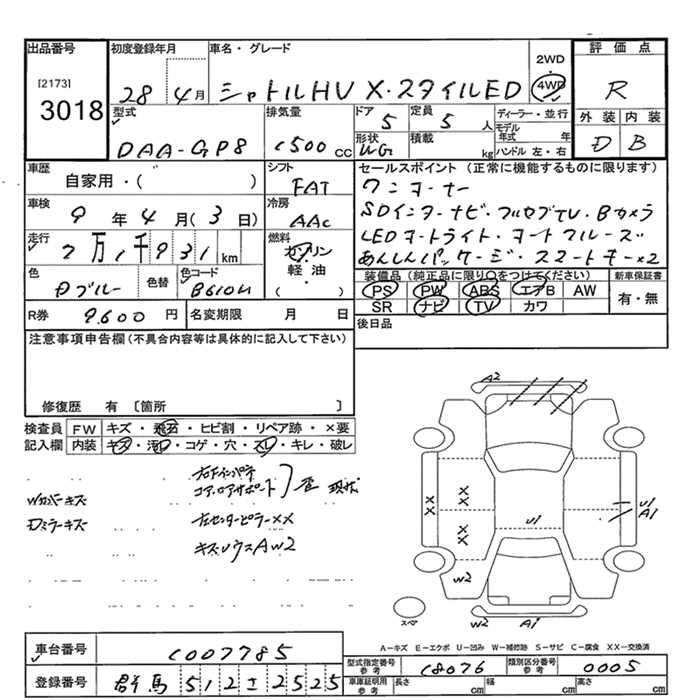 出品番号
[2173]
3018
初度登録年月
28 4月
車名・グレード
シャトルHV X・スタイルED
2WD
4WD
評価点
R
外装 内装
D B
型式
DAA-GP8
排気量
1500 cc
ドア
5
定員
5 人
形状
WG
積載
kg
ディーラー・並行
モデル年式 年
ハンドル 左・右
車歴
自家用・( )
シフト
FAT
車検
9年4月(3日)
冷房
AAC
走行
2万1千931 km
燃料
ガソリン
軽・油
( )
色
Dブルー
色替
色コード
B610M
R券 9,600 円
名変期限 月 日
セールスポイント(正常に機能するものに限ります)
ワンオーナー
SDインターナビ・フルセグTV・Bカメラ
LEDオートライト・オートクルーズ
あんしんパッケージ・スマートキー×2
装備品(純正品に限り○をつけてください)
PS PW ABS エアB AW
SR ナビ TV カワ
新車保証書
有・無
後日品
注意事項申告欄(不具合内容等は具体的に記入して下さい)
修復歴 有〔箇所 〕
検査員記入欄
FW キズ・飛石・ヒビ割・リペア跡・×要
内装 キズ・汚れ・コゲ・穴・スレ・キレ・破レ
Wカバーキズ
Dミラーキズ
左Fインパネ
コアロアサポート 歪 現状
左センターピラーXX
キズ小ウスAW2
A2
XX
XX
XX
U1
U1
A1
W2
W2
A1
スペア
A-キズ E-エクボ U-凹み W-補修跡 S-サビ C-腐食 XX-交換済
車台番号
1007785
登録番号
群馬 512 さ 2525
型式指定番号
参考
18076
類別区分番号
参考
0005
車庫証明用
参考
長さ cm
幅 cm
高さ cm